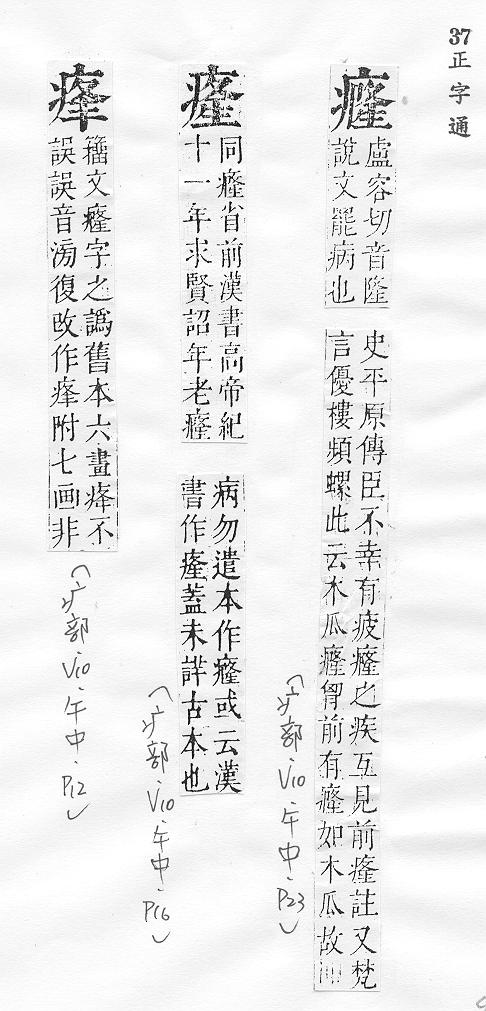 37正字通
癃
盧容切音隆
說文罷病也
史平原傳臣不幸有疲癃之疾互見前癃註又梵
言優樓頻螺此云木瓜癃胷前有癃如木瓜故
㾐
同癃省前漢書高帝紀
十一年求賢詔年老癃
病勿遣本作癃或云漢
書作㾐蓋未詳古本也
籀文癃字之譌舊本六畫㾏不
誤誤音滂復改作𤵸附七画非
(疒部·V10·午中·P23)
(疒部·V10·午中·P16)
(疒部·V10·午中·P12)